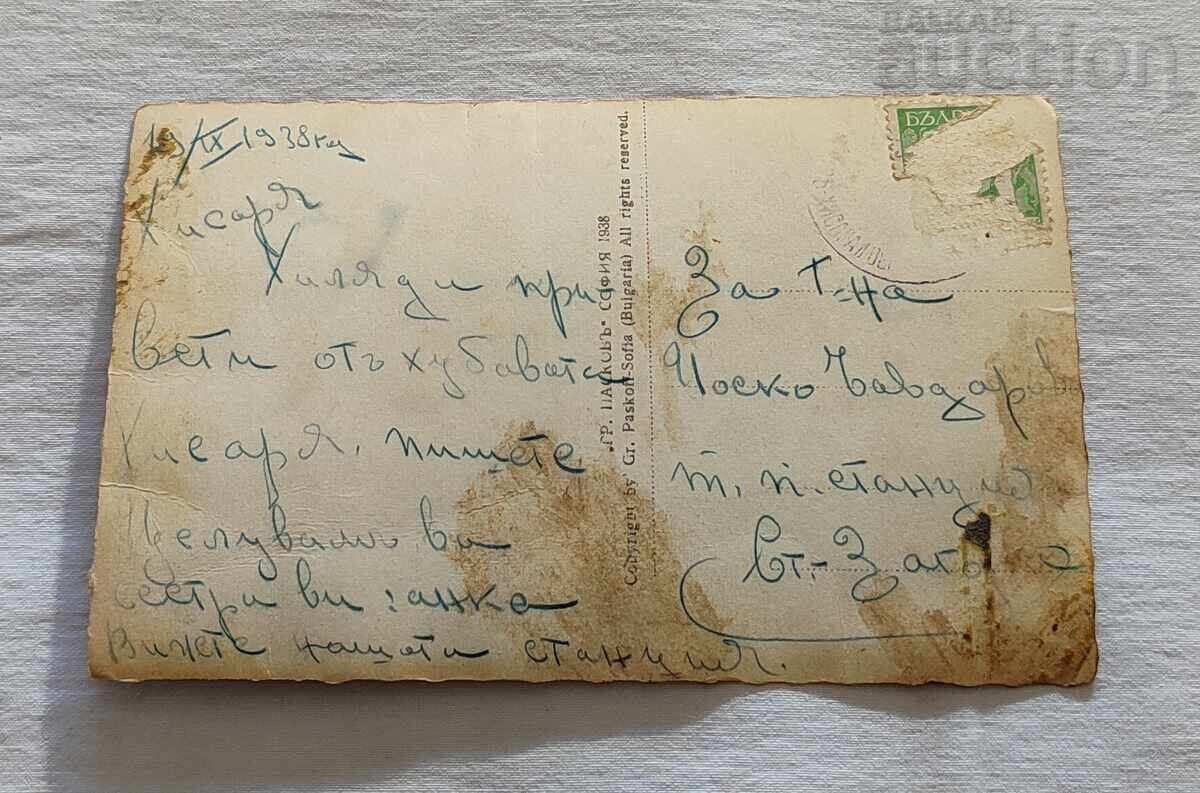 BALKAN
auction
19/IX 1938 год
Хисаря
Хиляди при
вети отъ хубавата
Хисаря. пишете
Целувамъ ви
сестра ви: анка
Вижте нашата станция.
ГР. ПАСКОВЪ - СОФИЯ 1938
Copyright by Gr. Paskoff-Sofia (Bulgaria) All rights reserved.
БЪЛГ
За Г-на
Йоско Чавдаров
т. п. станция
Ст.-Загора